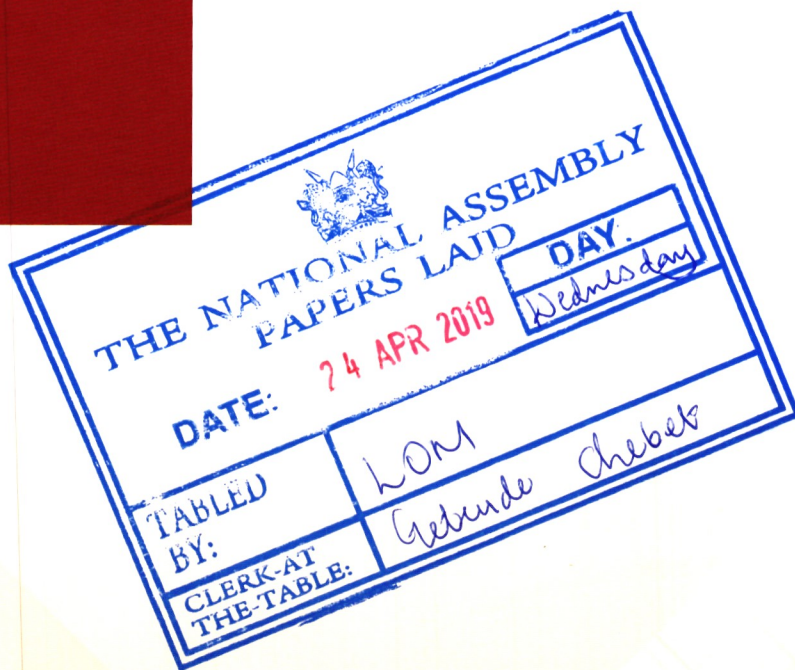 THE NATIONAL ASSEMBLY
PAPERS LAID
DATE: 24 APR 2019
DAY.
Wednesday
TABLED
BY:
LOM
CLERK-AT
THE-TABLE:
Getrude Chebet